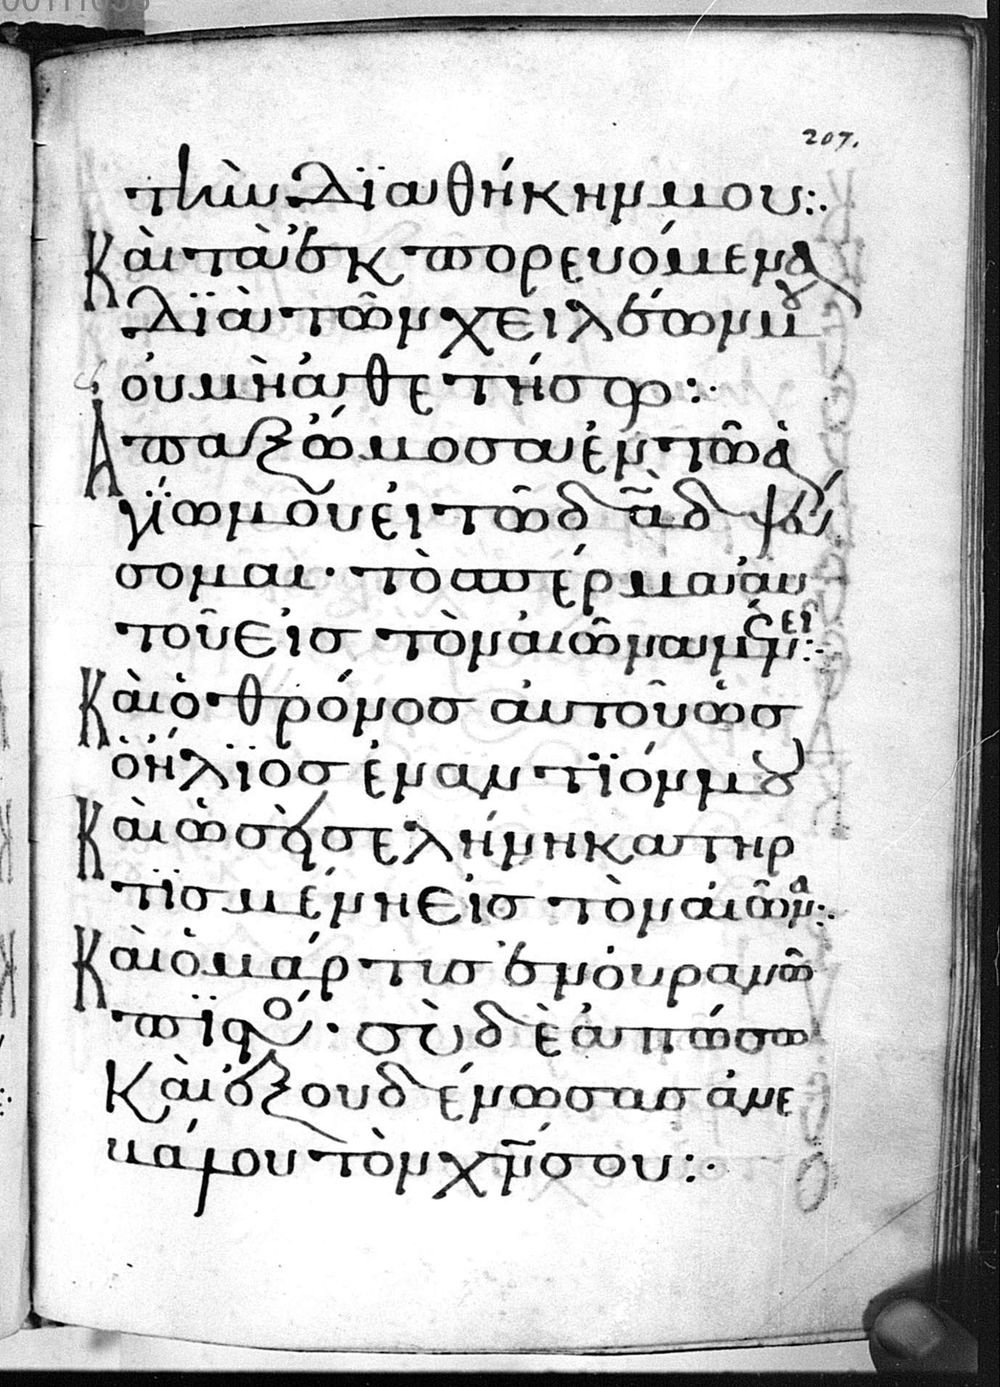 00111098
207.
τὴν διαθήκην μου:.
Καὶ τὰ ἐκπορευόμενα
διὰ τῶν χειλέων μου
οὐ μὴ ἀθετήσω:.
Ἅπαξ ὤμοσα ἐν τῶ ἁ
γίω μου εἰ τῶ δᾶδ ψεύ
σομαι· τὸ σπέρμα αὐ
τοῦ εἰς τὸν αἰῶνα μενεῖ:.
Καὶ ὁ θρόνος αὐτοῦ ὡς
ὁ ἥλϊος ἐναντϊόν μου
Καὶ ὡς ἡ σελήνη κατηρ
τϊσμένη εἰς τὸν αἰῶνα:.
Καὶ ὁ μάρτις ἐν οὐρανῶ
πϊστός· σὺ δὲ ἀπώσω
Καὶ ἐξουδένωσας ἀνε
βάλου τὸν χν̄ σου:.